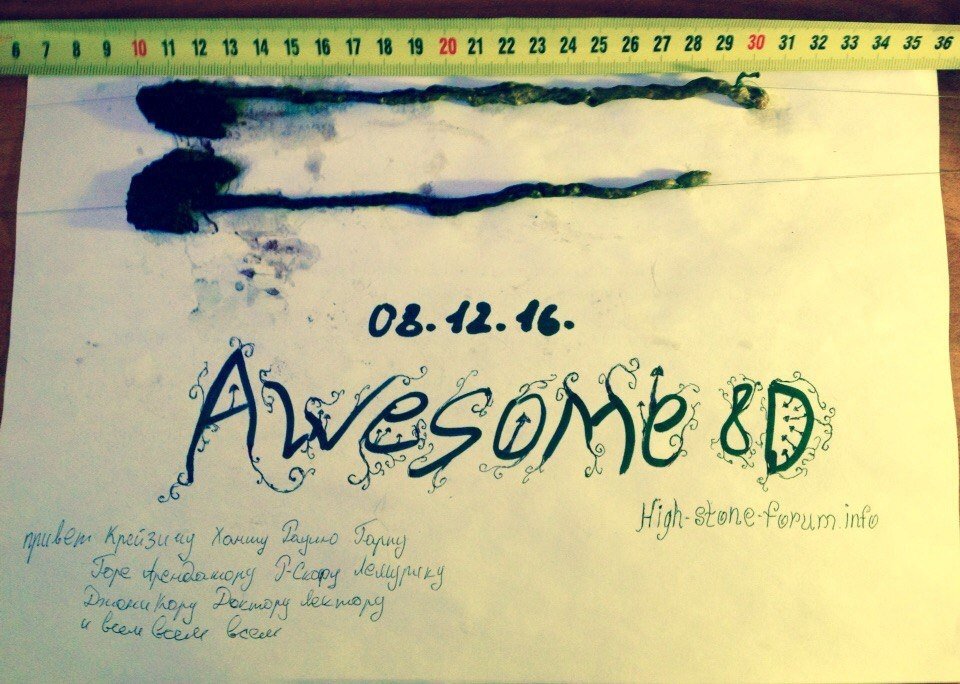 6 7 8 9 10 11 12 13 14 15 16 17 18 19 20 21 22 23 24 25 26 27 28 29 30 31 32 33 34 35 36
08.12.16.
Awesome 8D
High-stone-forum.info
привет Крейзину Ханту Раулю Гарпу
Горе Арендатору Р-Скафу Лемурику
Джони Кору Доктору Лектору
и всем всем всем